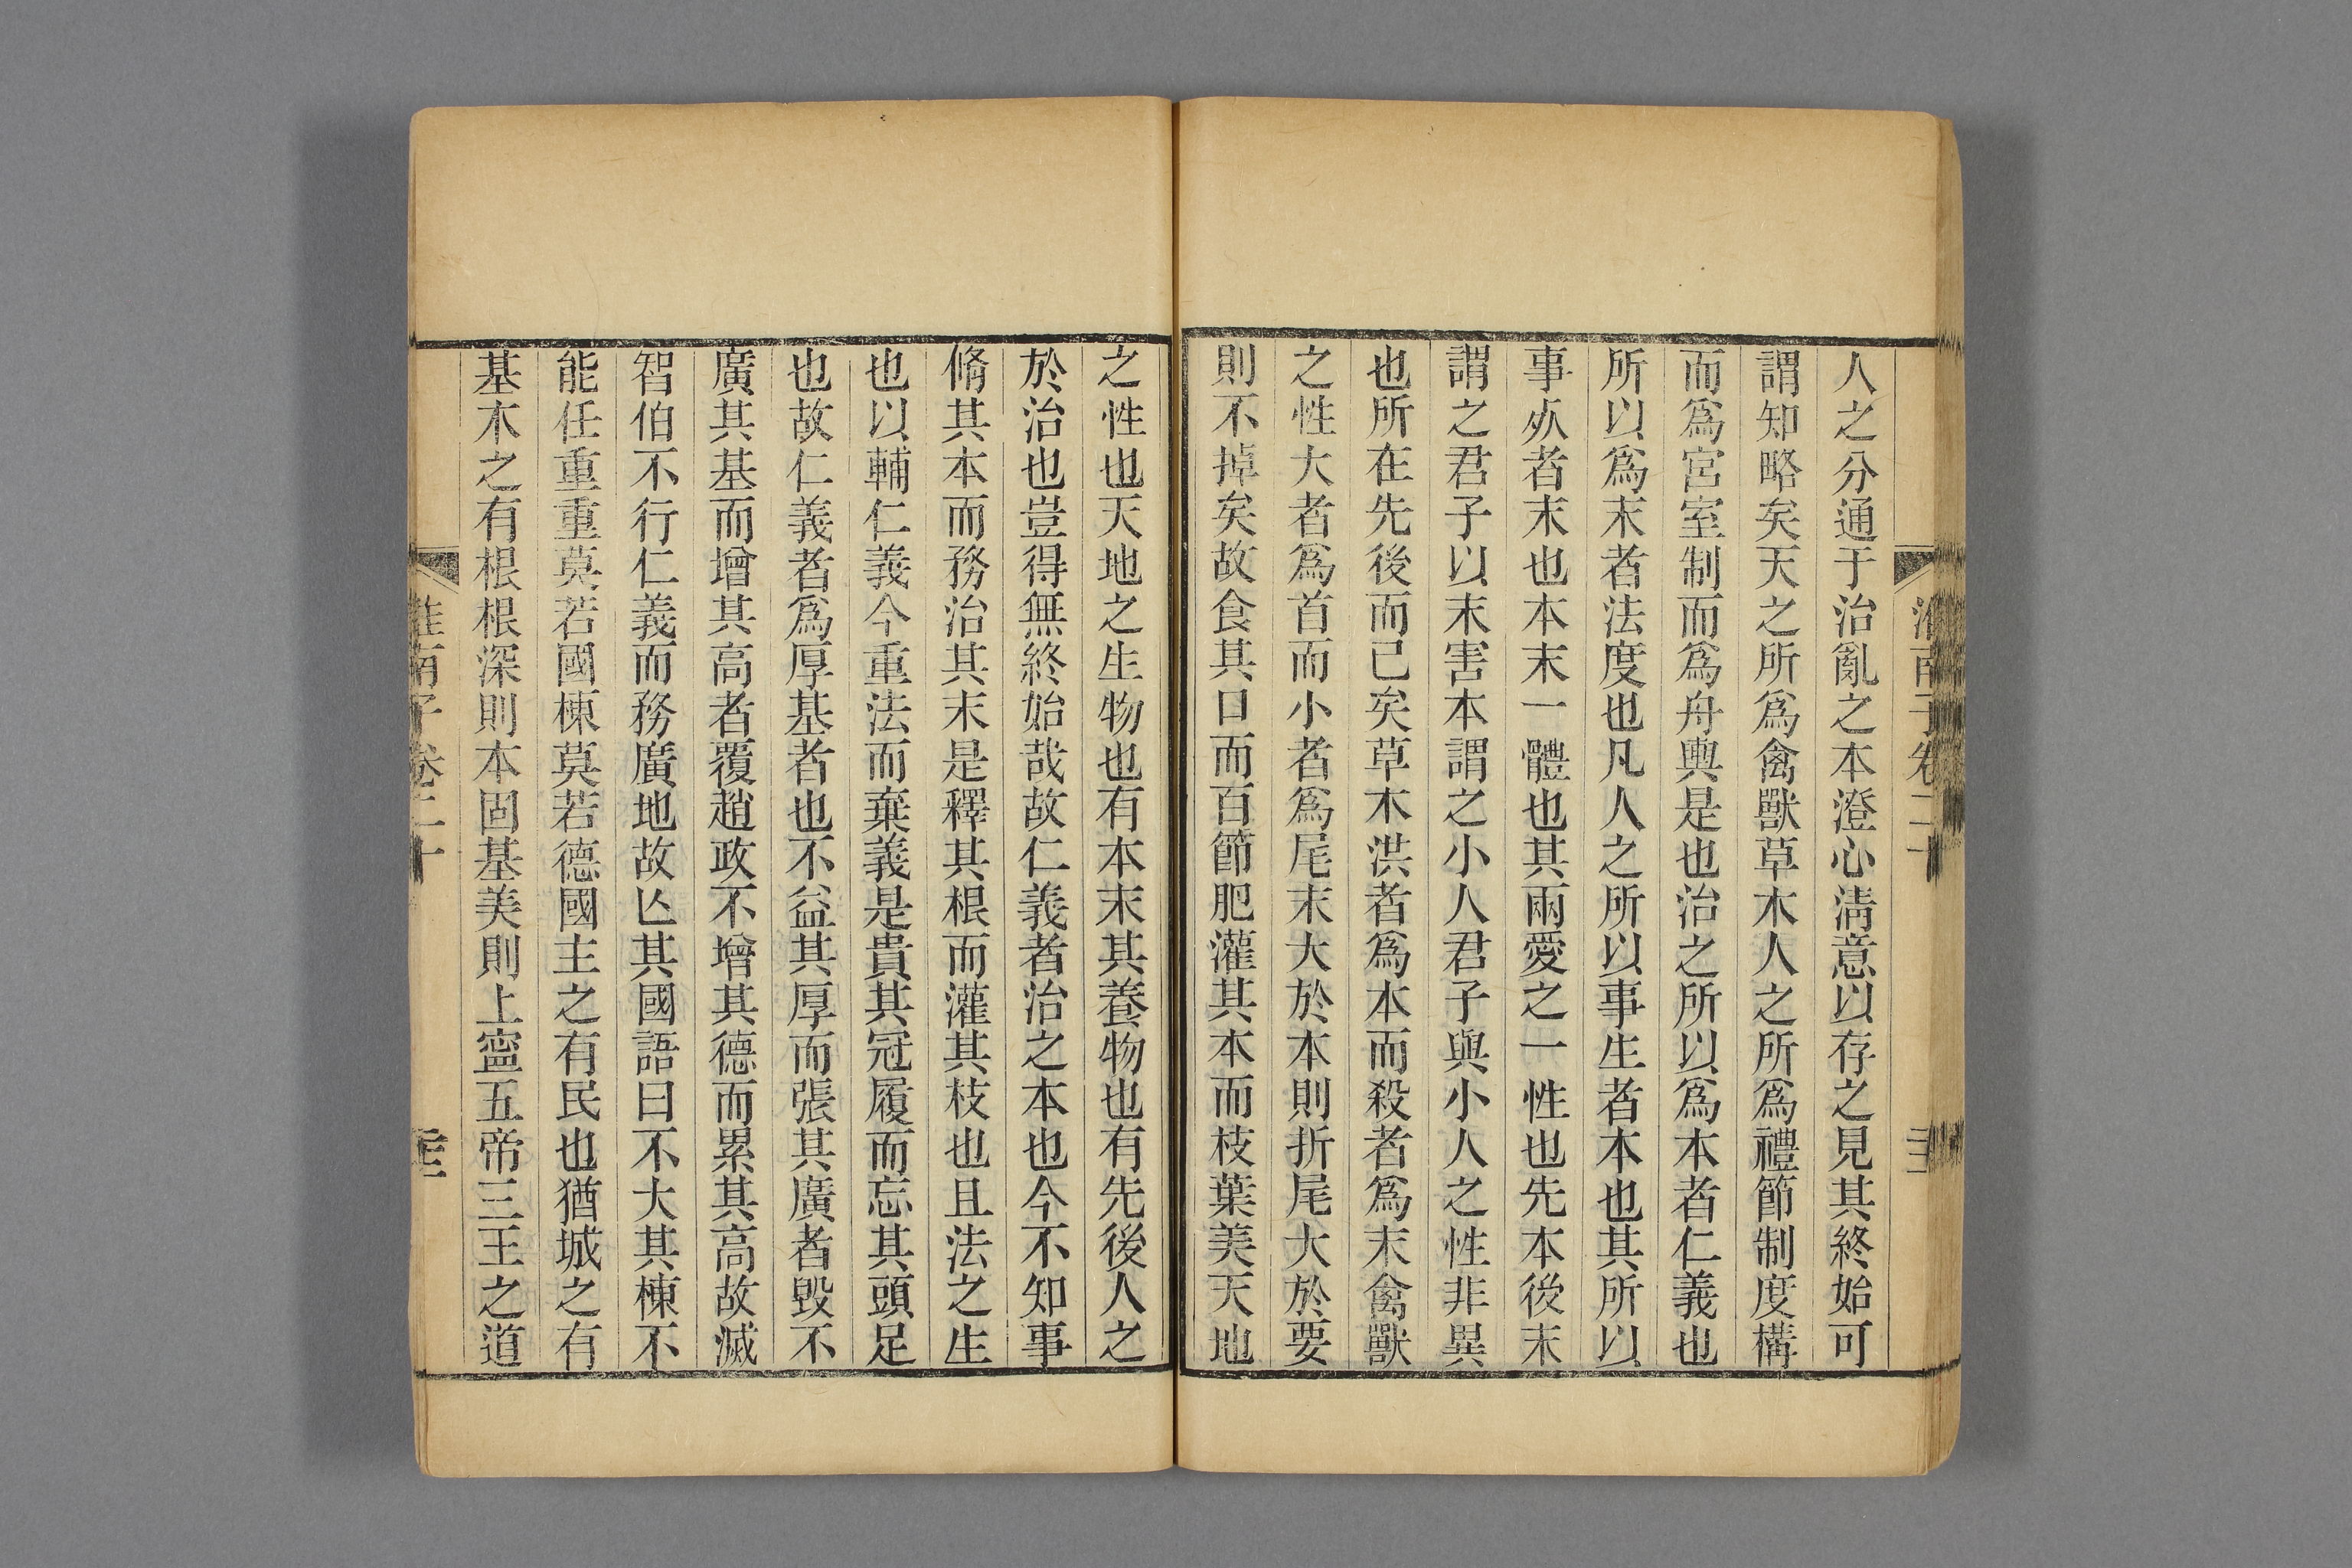 人之分通于治亂之本澄心淸意以存之見其終始可
謂知略矣天之所爲禽獸草木人之所爲禮節制度構
而爲宮室制而爲舟輿是也治之所以爲本者仁義也
所以爲末者法度也凡人之所以事生者本也其所以
事死者末也本末一體也其兩愛之一性也先本後末
謂之君子以末害本謂之小人君子與小人之性非異
也所在先後而已矣草木洪者爲本而殺者爲末禽獸
之性大者爲首而小者爲尾末大於本則折尾大於要
則不掉矣故食其口而百節肥灌其本而枝葉美天地
之性也天地之生物也有本末其養物也有先後人之
於治也豈得無終始哉故仁義者治之本也今不知事
脩其本而務治其末是釋其根而灌其枝也且法之生
也以輔仁義今重法而棄義是貴其冠履而忘其頭足
也故仁義者爲厚基者也不益其厚而張其廣者毀不
廣其基而增其高者覆趙政不增其德而累其高故滅
智伯不行仁義而務廣地故亾其國語曰不大其棟不
能任重重莫若國棟莫若德國主之有民也猶城之有
基木之有根根深則本固基美則上寧五帝三王之道
淮南子卷二十